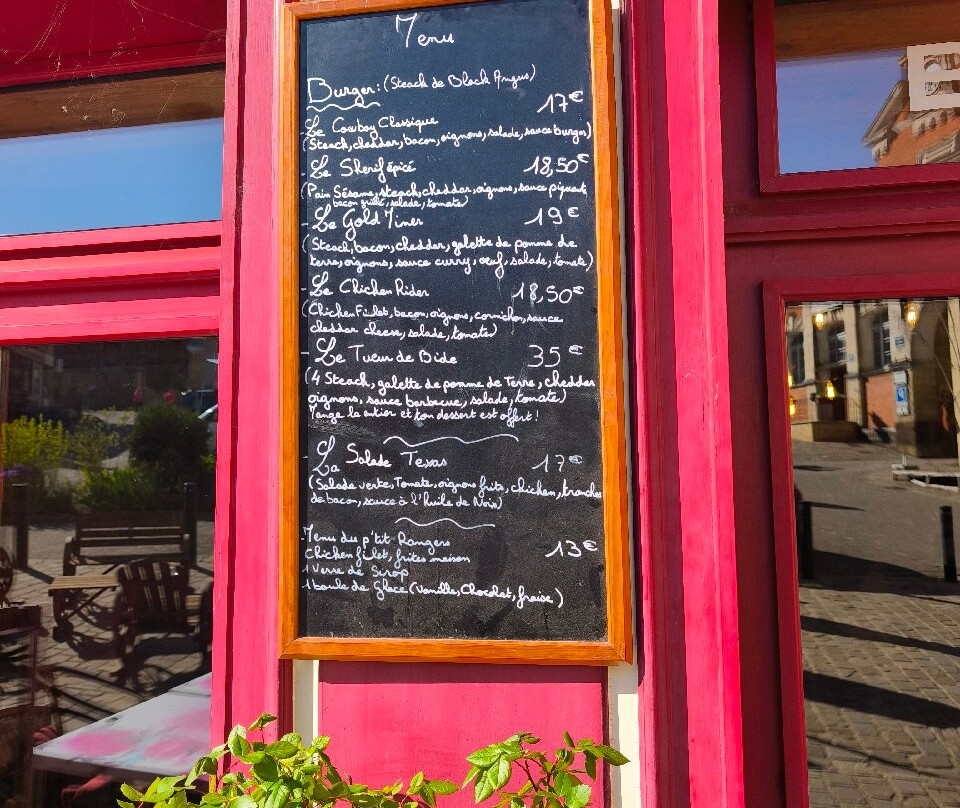 Menu
Burger: (Steack de Black Angus)
17€
- Le Cowboy Classique
(Steack, cheddar, bacon, oignons, salade, sauce burger)
- Le Sherif épicé 18,50€
(Pain Sésame, steack, cheddar, oignons, sauce piquante
bacon grillé, salade, tomate)
- Le Gold Miner 19€
(Steack, bacon, cheddar, galette de pomme de
terre, oignons, sauce curry, œuf, salade, tomate)
- Le Chicken Rider 18,50€
(Chicken Filet, bacon, oignons, cornichon, sauce
cheddar cheese, salade, tomate)
- Le Tueur de Bide 35€
(4 Steack, galette de pomme de Terre, cheddar
oignons, sauce barbecue, salade, tomate)
Mange le entier et ton dessert est offert!
- La Salade Texas 17€
(Salade verte, Tomate, oignons frits, chicken, tranches
de bacon, sauce à l'huile de Noix)
- Menu du p'tit Rangers
Chicken filet, frites maison 13€
1 Verre de Sirop
1 boule de Glace (Vanille, Chocolat, fraise)